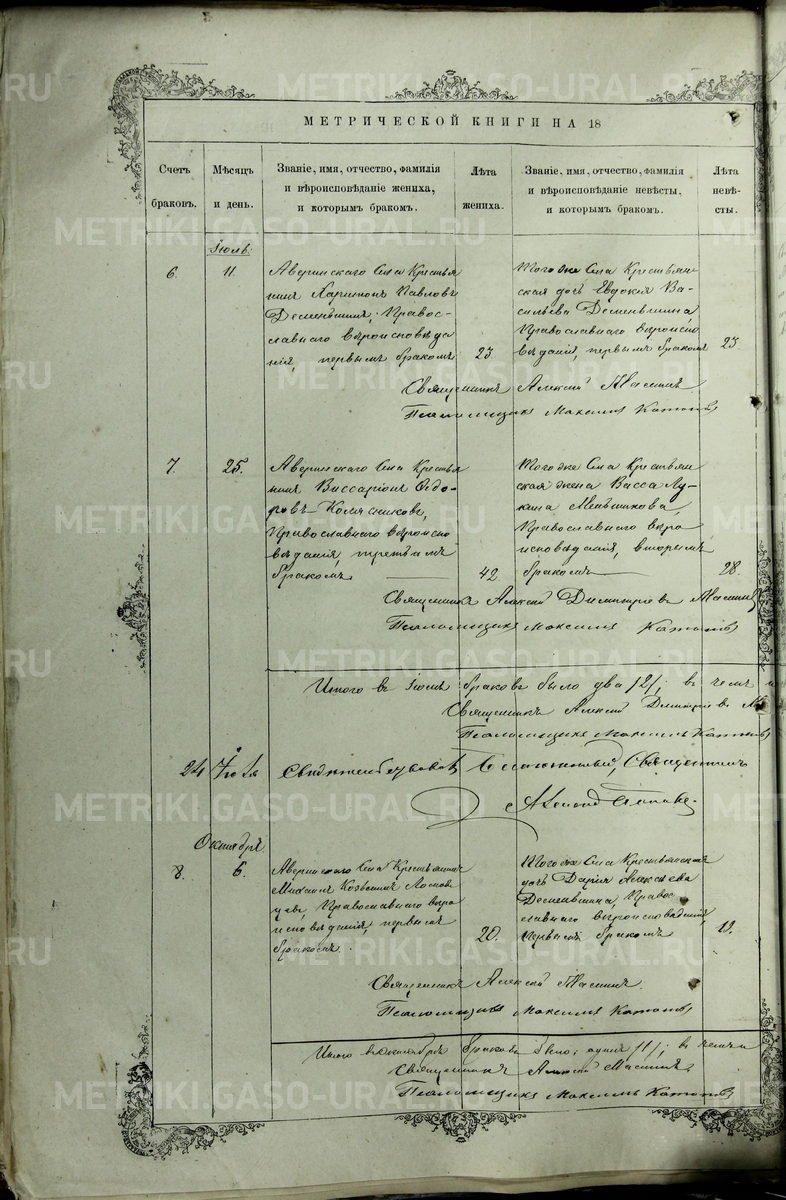 METRIKI.GASO-URAL.RU
МЕТРИЧЕСКОЙ КНИГИ НА 18
Счетъ браковъ.
Мѣсяцъ и день.
Званіе, имя, отчество, фамилія
и вѣроисповѣданіе жениха,
и которымъ бракомъ.
Лѣта жениха.
Званіе, имя, отчество, фамилія
и вѣроисповѣданіе невѣсты,
и которымъ бракомъ.
Лѣта невѣ-
сты.
6.
11.
Аверинскаго Села Крестья
нинъ Харитонъ Павловъ
Деменьшинъ, Правос-
лавнаго вѣроисповѣда
нія, первымъ бракомъ
23.
Того же Села Крестьян-
ская дочь Евдокія Ва-
сильева Деменьшина,
Православнаго вѣроиспо
вѣданія, первымъ бракомъ
23.
Священникъ Алексій
Псаломщикъ Максимъ
7.
25.
Аверинскаго Села Крестья
нинъ Виссаріонъ Ѳедо-
ровъ Колясниковъ,
Православнаго вѣроиспо
вѣданія, третьимъ
бракомъ
42.
Того же Села Крестьян
ская жена Васса Лу-
кина Меньшикова,
Православнаго вѣро
исповѣданія, вторымъ
бракомъ
28.
Священникъ Алексій Димитріевъ
Псаломщикъ Максимъ
Итого въ браковъ было два /2/; въ чемъ и
Священникъ Алексій Димитріевъ
Псаломщикъ Максимъ
24
Свидѣтельствовалъ Священникъ
Октября
8.
6.
Аверинскаго Села Крестьянинъ
Михаилъ Козьминъ
Православнаго вѣро
исповѣданія, первымъ
бракомъ.
20.
Того же Села Крестьянская
дочь Дарія Алексѣева
Деменьшина, Правос
лавнаго вѣроисповѣданія,
первымъ бракомъ
19.
Священникъ Алексій
Псаломщикъ Максимъ
Итого въ Октябрѣ браковъ было: одинъ /1/; въ чемъ и
Священникъ Алексій
Псаломщикъ Максимъ